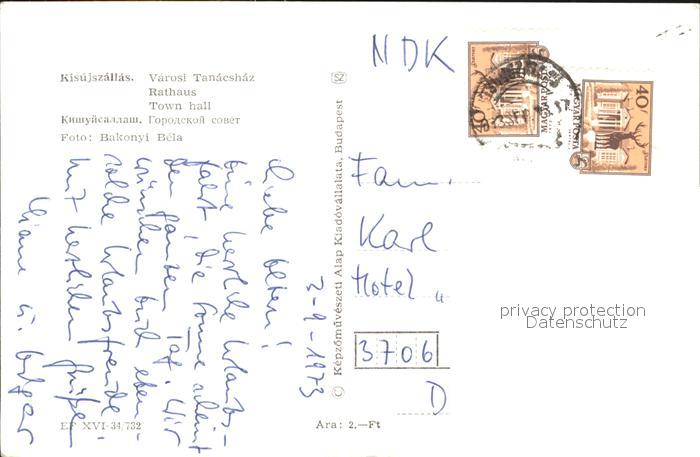 Kisújszállás. Városi Tanácsház
Rathaus
Town hall
Кишуйсаллаш. Городской совет
Foto: Bakonyi Béla
NDK
40f
MAGYAR POSTA
40f
MAGYAR POSTA
SZ
© Képzőművészeti Alap Kiadóvállalata, Budapest
2-9-1973
Liebe Eltern!
Eine herrliche Urlaubs-
fahrt, die Sonne scheint
den ganzen Tag. Wir
wünschen Euch eben-
solche Urlaubsfreude
Mit herzlichen Grüßen
u. Edgar
Fam.
Karl
Hotel "
3706
D
privacy protection
Datenschutz
EF XVI-34/732
Ára: 2,—Ft